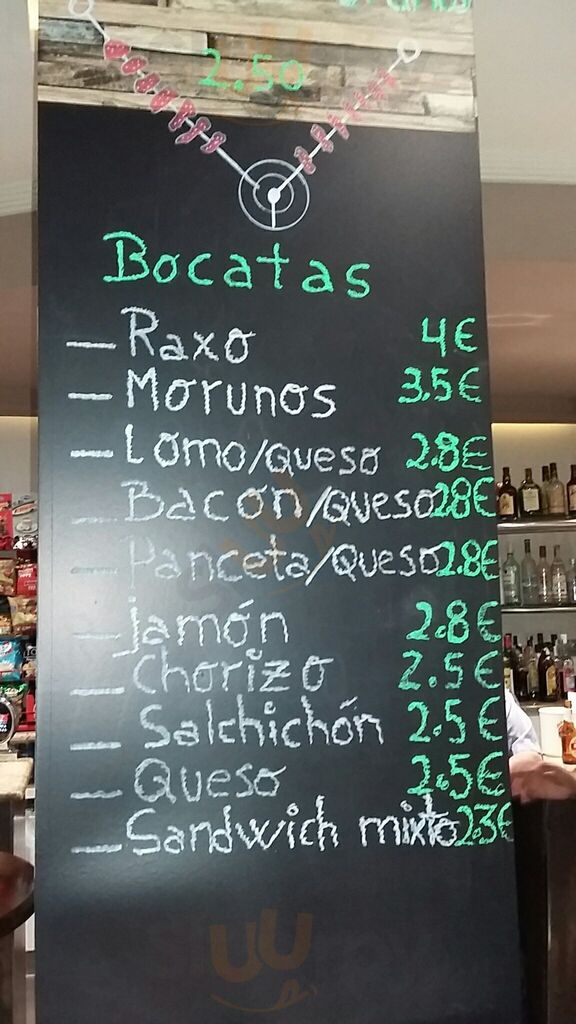 2.50
Bocatas
— Raxo 4€
— Morunos 3.5€
— Lomo/Queso 2.8€
— Bacon/Queso 2.8€
— Panceta/Queso 2.8€
— jamón 2.8€
— Chorizo 2.5€
— Salchichón 2.5€
— Queso 2.5€
— Sandwich mixto 2.3€